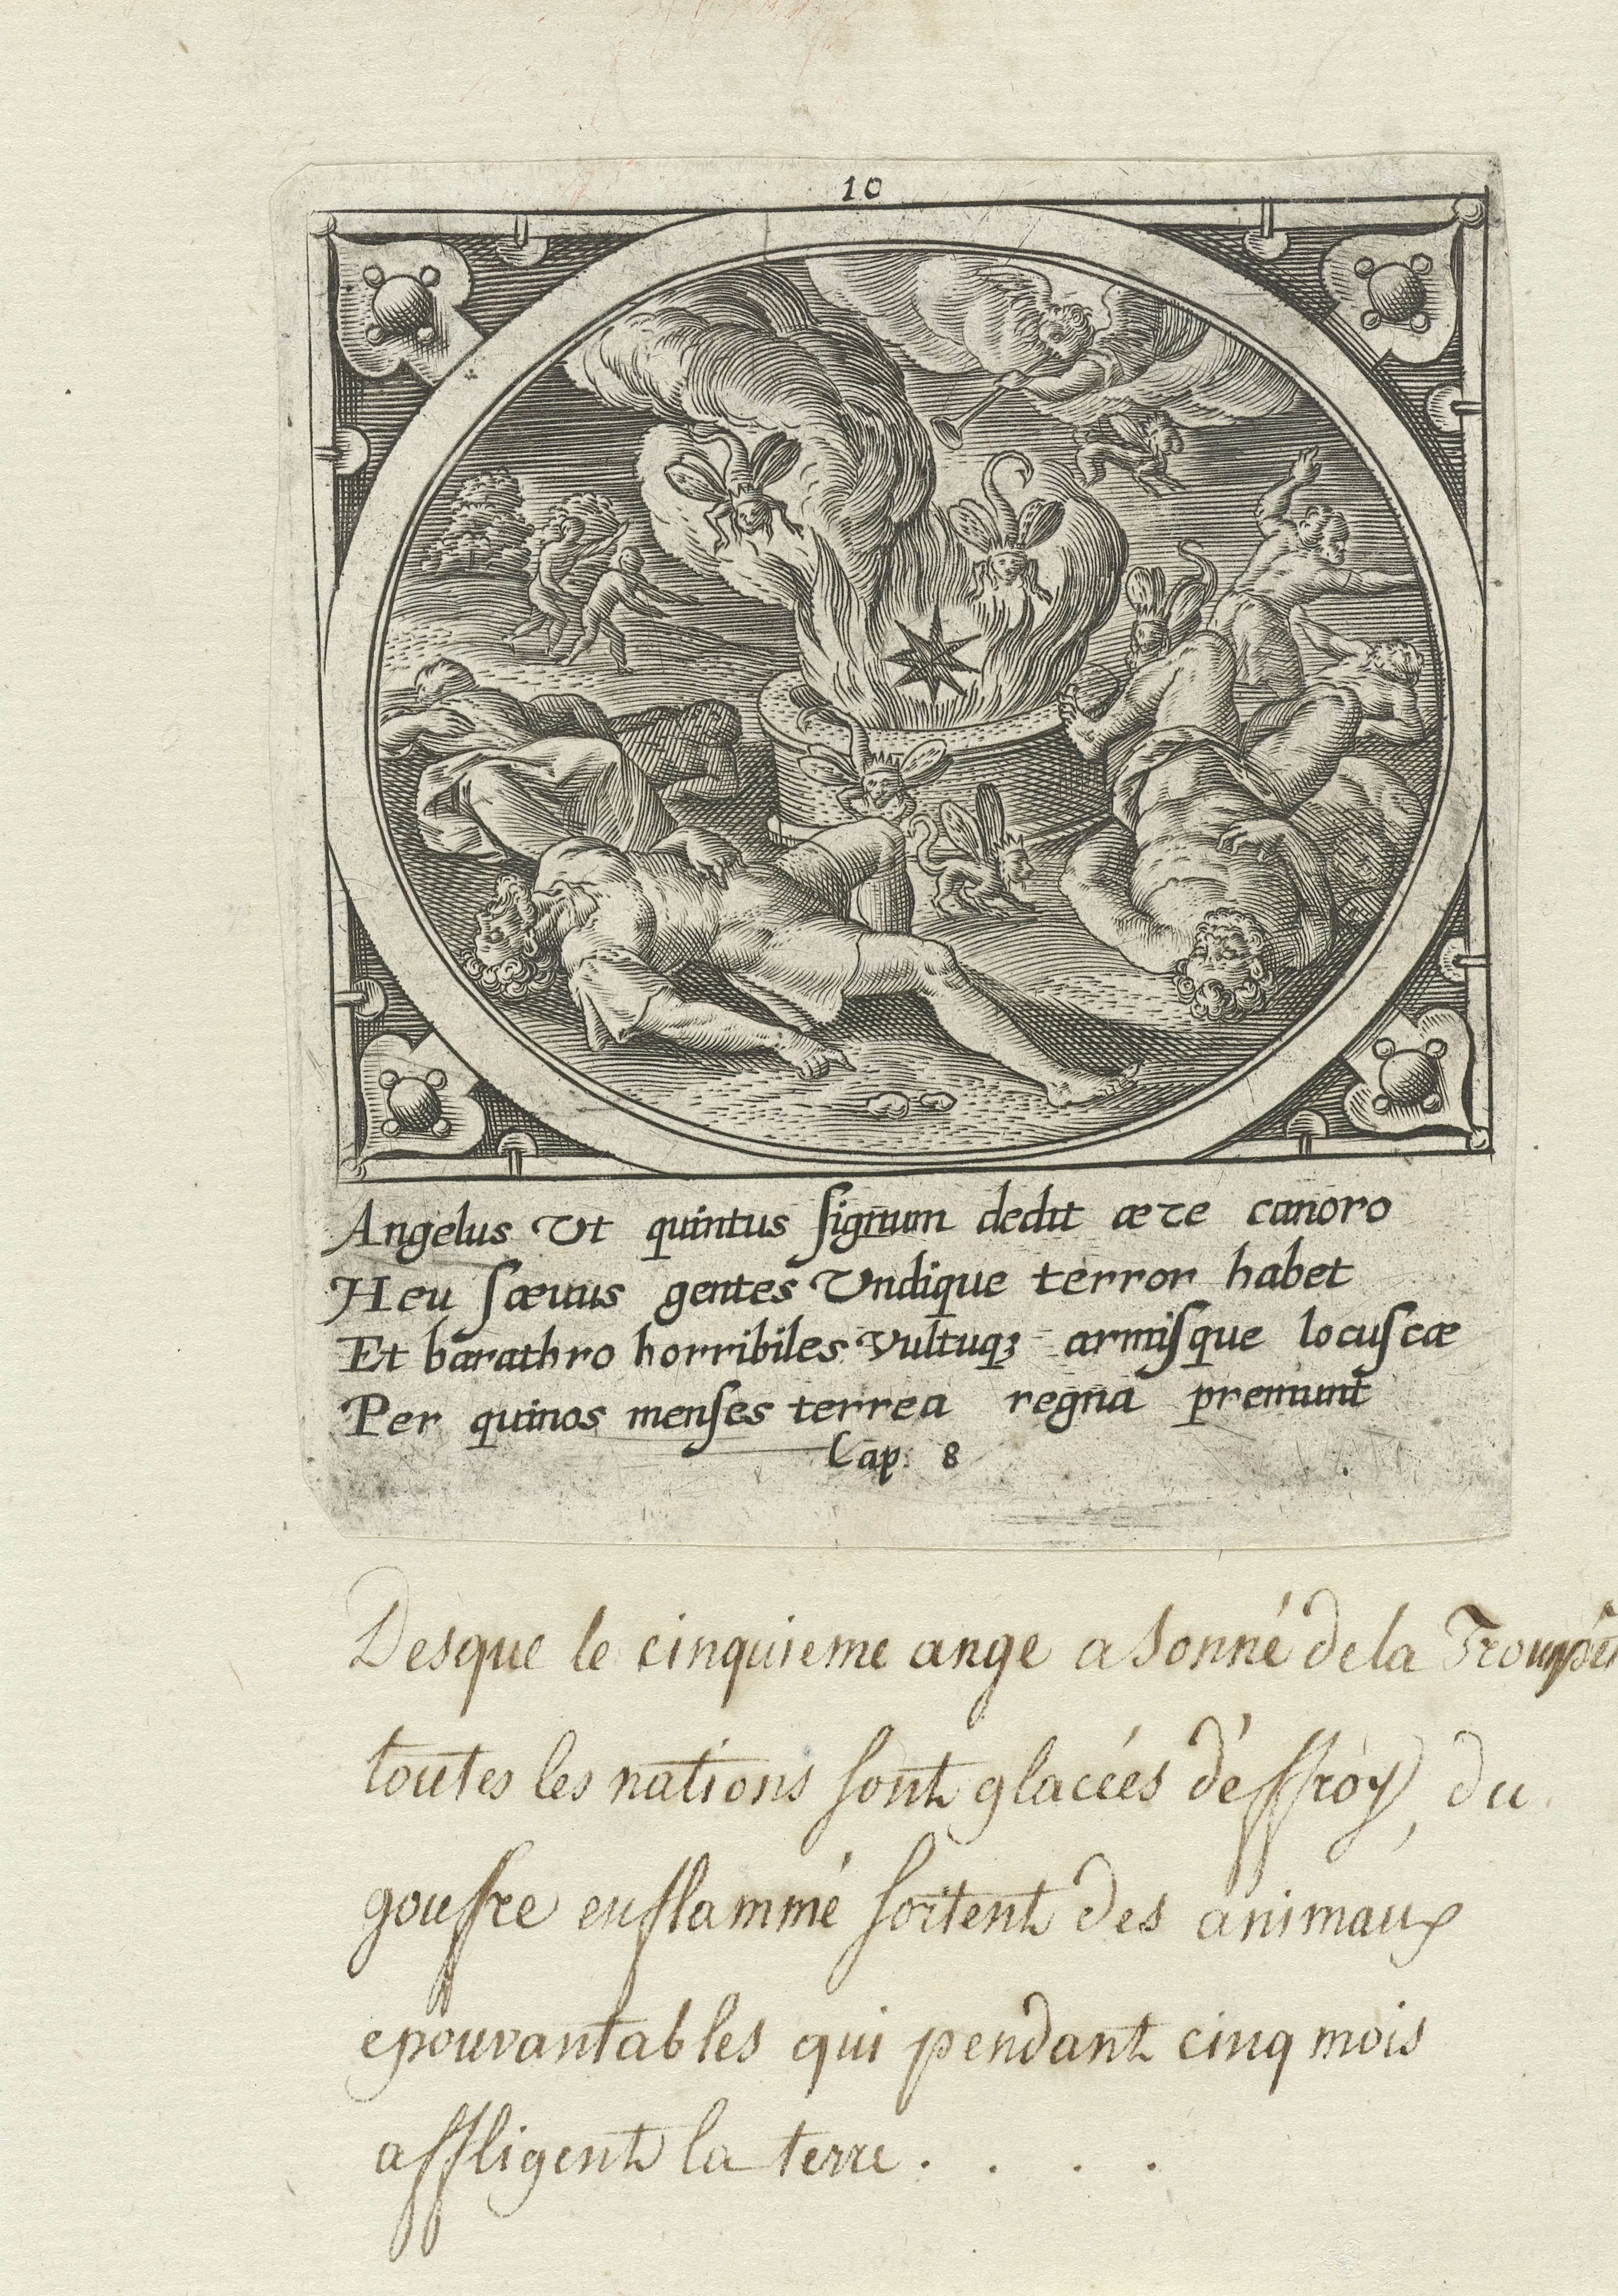 10
Angelus Vt quintus ſignum dedit ære canoro
Heu ſæuus gentes Vndique terror habet
Et barathro horribiles Vultuqꝫ armiſque locuſtæ
Per quinos menſes terrea regna premunt
Cap. 8
Desque le cinquieme ange a sonné de la
toutes les nations sont glacées d'éffroy, du
goufre enflammé sortent des animaux
epouvantables qui pendant cinq mois
affligent la terre. . . .